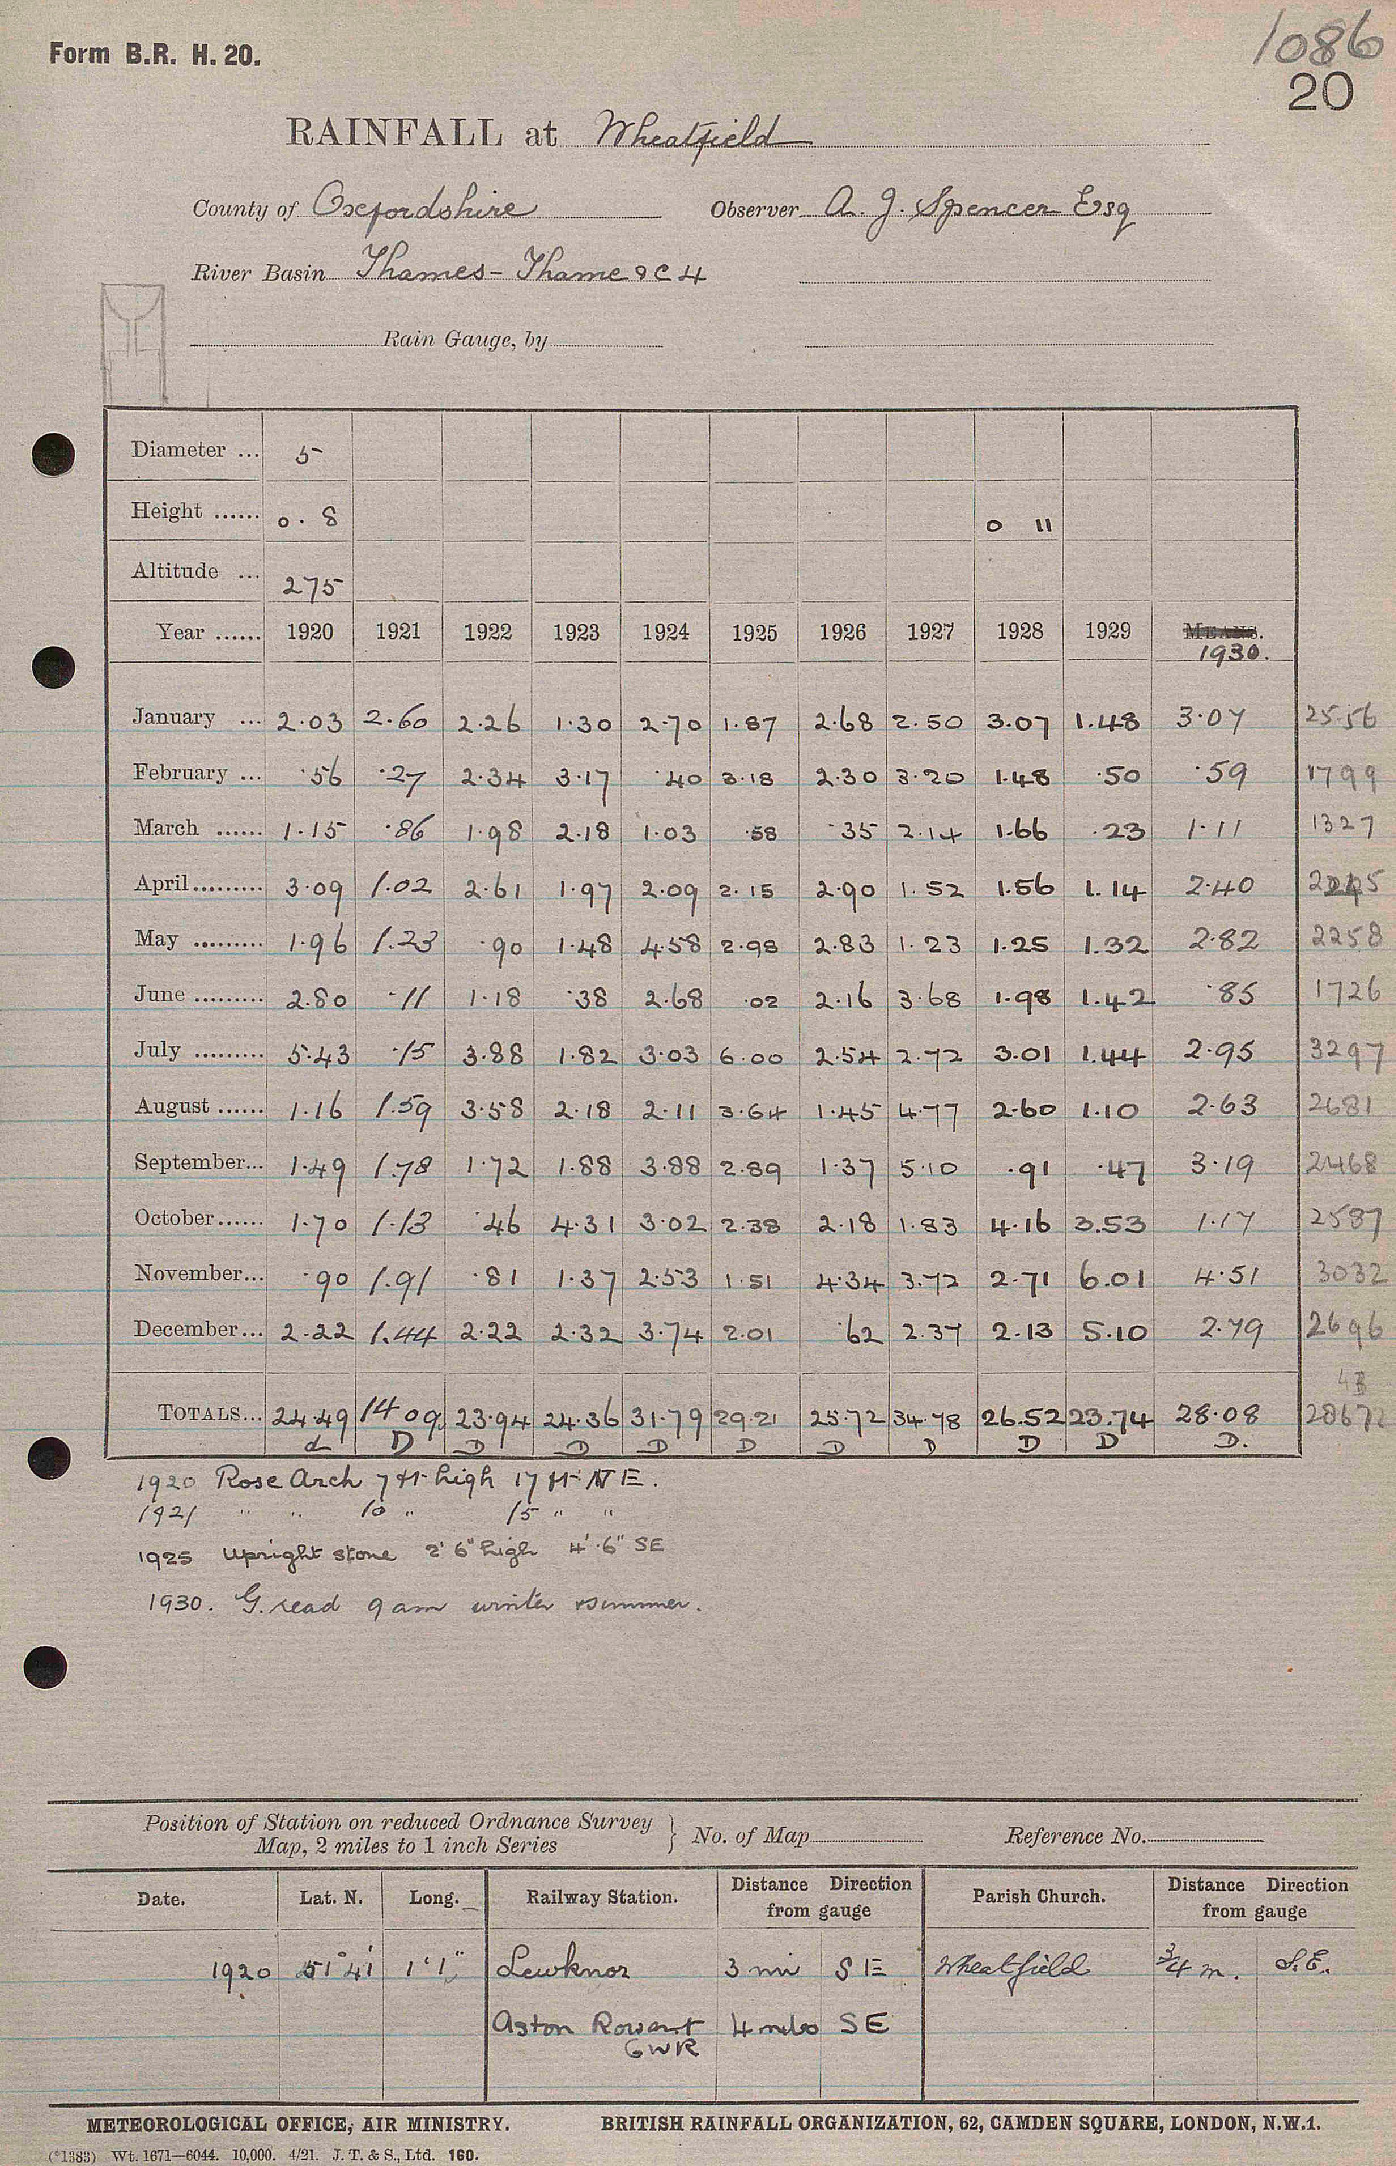 Form B.R. H. 20.
1086
20
RAINFALL at Wheatfield
County of Oxfordshire Observer A. J. Spencer Esq
River Basin Thames - Thame & C 4
Rain Gauge, by
Diameter ... 5
Height ...... 0 . 8 0 11
Altitude ... 275
Year ...... 1920 1921 1922 1923 1924 1925 1926 1927 1928 1929 MEANS.
1930.
January ... 2.03 2.60 2.26 1.30 2.70 1.87 2.68 2.50 3.07 1.48 3.07 25.56
February ... .56 .27 2.34 3.17 .40 3.18 2.30 3.20 1.48 .50 .59 1799
March ...... 1.15 .86 1.98 2.18 1.03 .58 .35 2.14 1.66 .23 1.11 1327
April......... 3.09 1.02 2.61 1.97 2.09 2.15 2.90 1.52 1.56 1.14 2.40
May ......... 1.96 1.23 .90 1.48 4.58 2.98 2.83 1.23 1.25 1.32 2.82 2258
June ......... 2.80 .11 1.18 .38 2.68 .02 2.16 3.68 1.98 1.42 .85 1726
July ......... 5.43 .15 3.88 1.82 3.03 6.00 2.54 2.72 3.01 1.44 2.95 3297
August ...... 1.16 1.59 3.58 2.18 2.11 3.64 1.45 4.77 2.60 1.10 2.63 2681
September... 1.49 1.78 1.72 1.88 3.88 2.89 1.37 5.10 .91 .47 3.19 2468
October...... 1.70 1.13 .46 4.31 3.02 2.38 2.18 1.83 4.16 3.53 1.17 2587
November... .90 1.91 .81 1.37 2.53 1.51 4.34 3.72 2.71 6.01 4.51 3032
December... 2.22 1.44 2.22 2.32 3.74 2.01 .62 2.37 2.13 5.10 2.79 2696
TOTALS... 24.49 14 09 23.94 24.36 31.79 29.21 25.72 34.78 26.52 23.74 28.08 28672
d D D D D D D D D D D.
1920 Rose Arch 7 ft high 17 ft NE.
1921 " " 10 " 15 " "
1925 Upright stone 2' 6" high 4' .6" SE
1930. G. read 9 am winter & summer.
Position of Station on reduced Ordnance Survey
Map, 2 miles to 1 inch Series
No. of Map Reference No.
Date. Lat. N. Long. Railway Station. Distance Direction from gauge Parish Church. Distance Direction from gauge
1920 51° 41' 1° 1' Lewknor 3 mi SE Wheatfield 3/4 m. S.E.
Aston Rowant 4 miles SE
GWR
METEOROLOGICAL OFFICE, AIR MINISTRY. BRITISH RAINFALL ORGANIZATION, 62, CAMDEN SQUARE, LONDON, N.W.1.
(*1383) Wt. 1671—6044. 10,000. 4/21. J. T. & S., Ltd. 160.